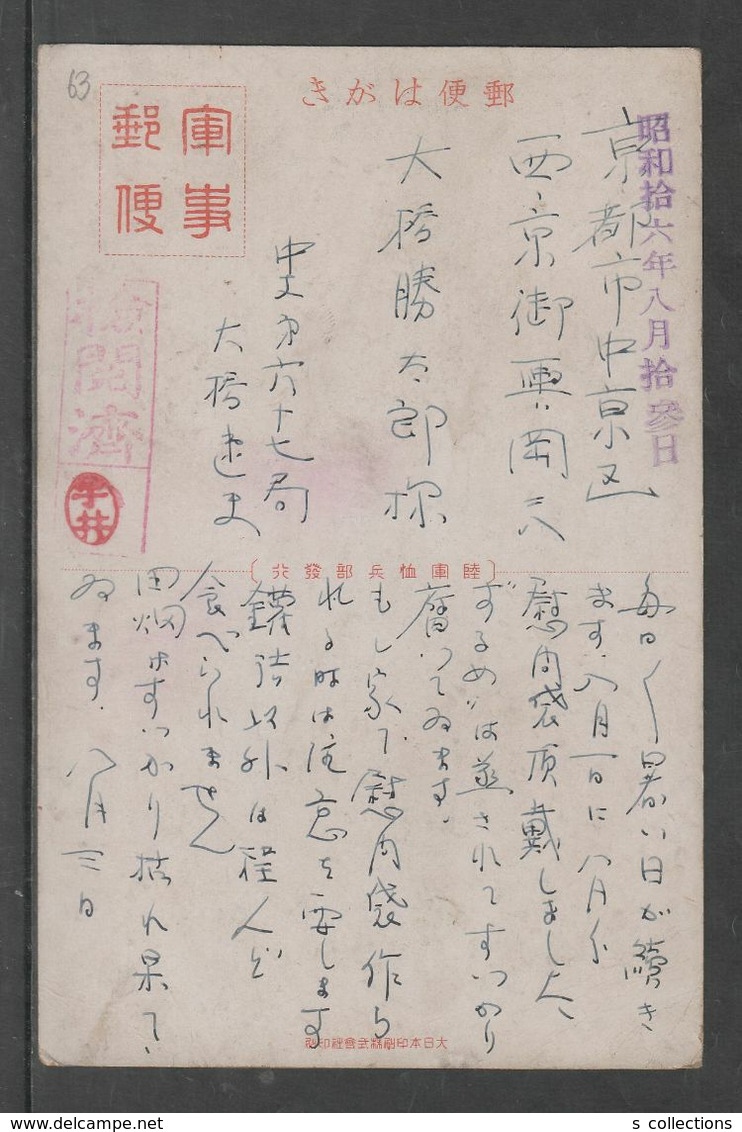 63
郵便はがき
軍事
郵便
昭和拾六年八月拾參日
京都市中京区
西ノ京御輿岡町八
大橋勝太郎様
中支第六十七局
大橋
検閲濟
陸軍恤兵部發行
毎日〱暑い日が續き
ます、八月一日に八月分
慰問袋頂戴しました、
ずるめは蒸されてすっかり
腐ってゐます。
もし家で慰問袋作ら
れる時は注意を要します
鑵詰以外は殆んど
食べられません
田畑はすっかり枯れ果て、
ゐます. 八月三日
大日本印刷株式會社印刷
s collections